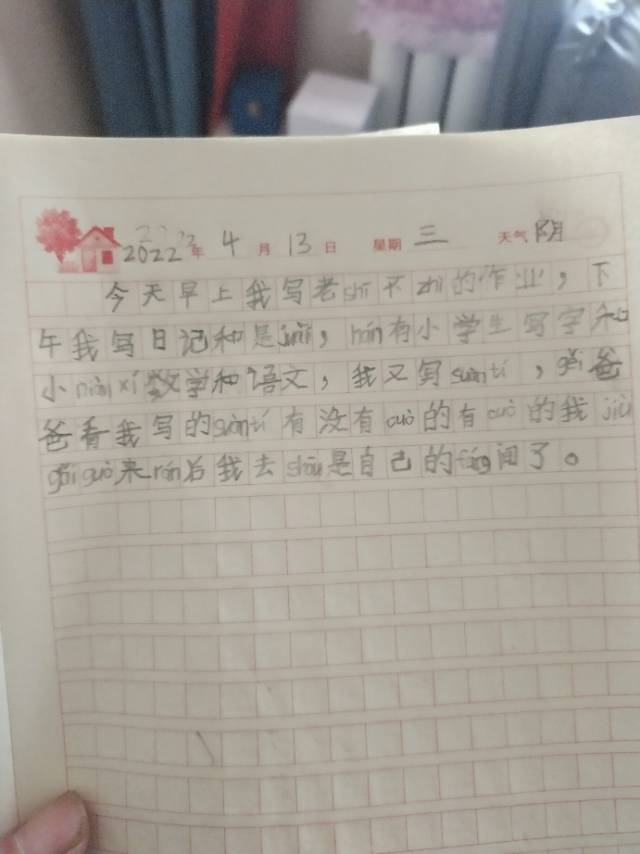 2022年 4月 13日 星期 三 天气 阴
今天早上我写老shī不zhì的作业，下
午我写日记和是，hán有小学生写字和
小liàn xí数学和语文，我又写suàn tí，gěi爸
爸看我写的suàn tí有没有cuò的有cuò的我jiù
gǎi guò来rán后我去shōu是自己的fáng间了。